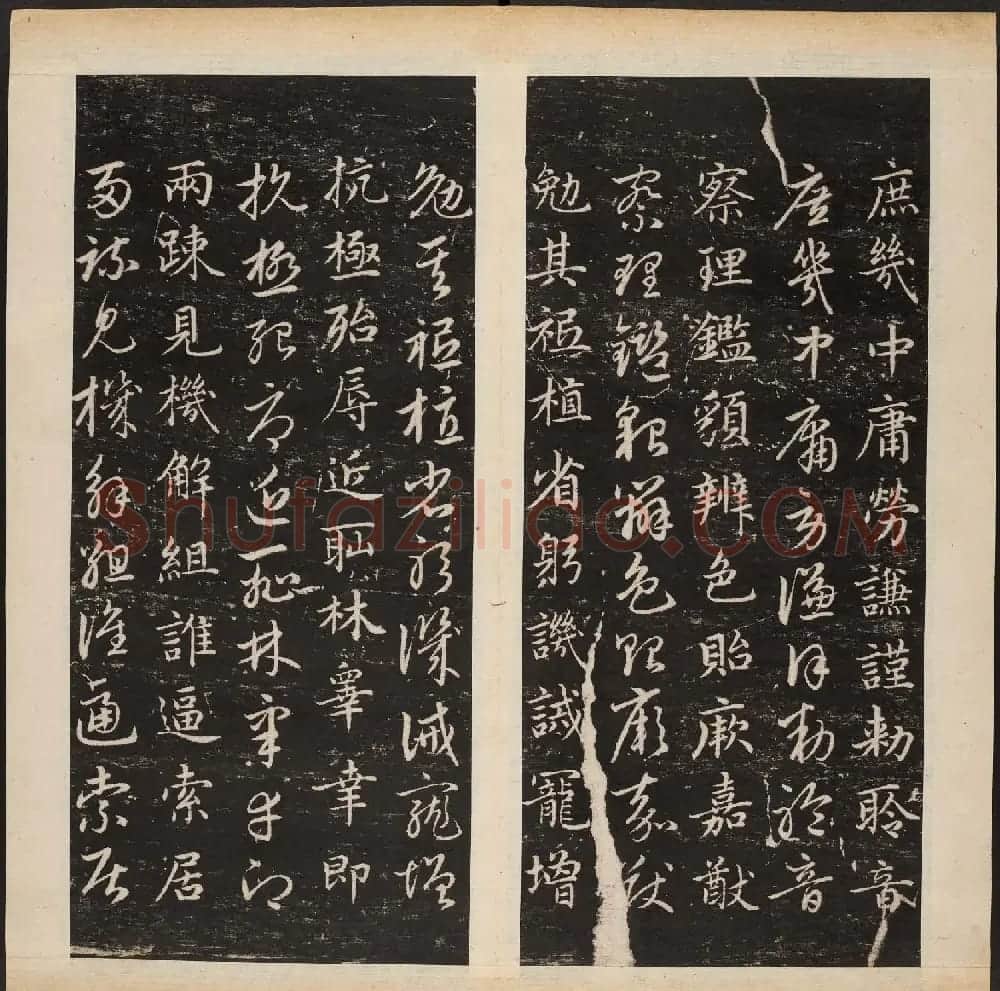 庶幾中庸勞謙謹勅聆音
庶幾中庸勞謙謹勅聆音
察理鑑䫉辨色貽厥嘉猷
察理鑑貌辨色貽厥嘉猷
勉其祗植省躬譏誡寵增
勉其祗植省躬譏誡寵增
抗極殆辱近耻林睾幸即
抗極殆辱近耻林睾幸即
兩踈見機解組誰逼索居
兩踈見機解組誰逼索居
Shufaziliao.COM